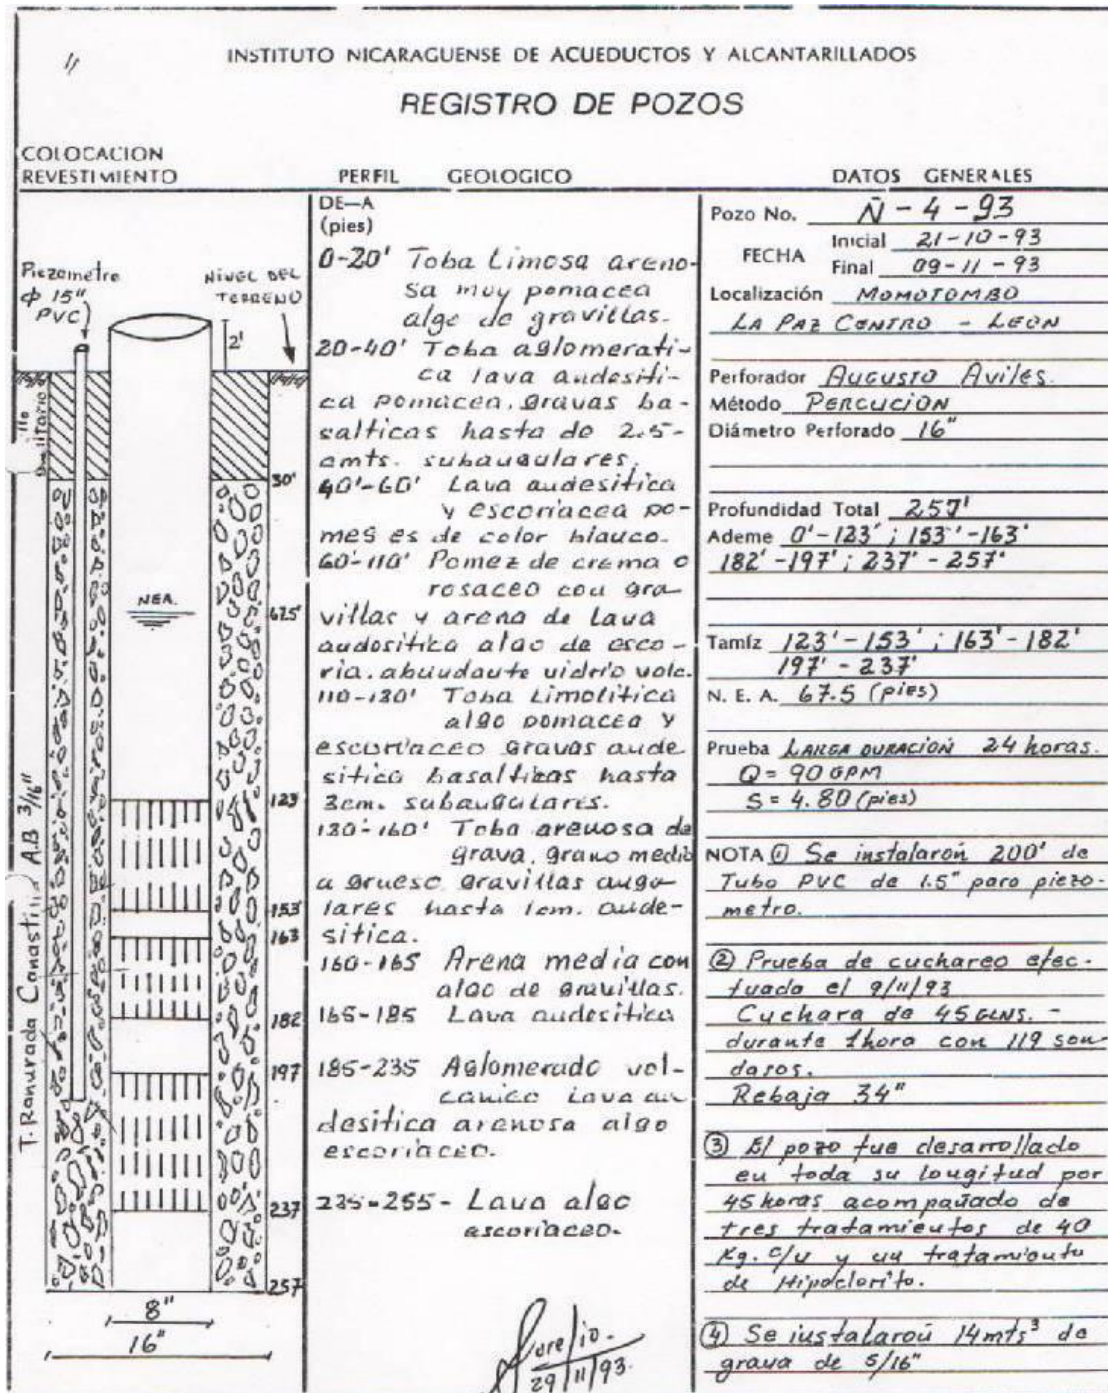 INSTITUTO NICARAGUENSE DE ACUEDUCTOS Y ALCANTARILLADOS
REGISTRO DE POZOS
COLOCACION
REVESTIMIENTO
Piezometro
φ 15"
PVC)
NIVEL DEL
TERRENO
2'
Sanitario
30'
NEA.
67.5'
123
153
163
182
197
237
257
T. Ranurada Canastilla A.B 3/16"
8"
16"
PERFIL GEOLOGICO
DE—A
(pies)
0-20' Toba Limosa areno-
sa muy pomacea
algo de gravillas.
20-40' Toba aglomerati-
ca lava andesiti-
ca pomacea, gravas ba-
salticas hasta de 2.5-
cmts. subangulares.
40'-60' Lava andesitica
y escoriacea po-
mes es de color blanco.
60-110' Pomez de crema o
rosaceo con gra-
villas y arena de Lava
andositica algo de esco-
ria. abundante vidrio volc.
110-130' Toba Limolitica
algo pomacea y
escoriaceo gravas ande
sitica basalticas hasta
3cm. subangulares.
130-160' Toba arenosa de
grava, grano medio
a grueso gravillas angu-
lares hasta 1cm. ande-
sitica.
160-165 Arena media con
algo de gravillas.
165-185 Lava andesitica
185-235 Aglomerado vol-
canico Lava an
desitica arenosa algo
escoriaceo.
235-255- Lava algo
escoriaceo.
29/11/93.
DATOS GENERALES
Pozo No. Ñ-4-93
FECHA Inicial 21-10-93
Final 09-11-93
Localización MOMOTOMBO
LA PAZ CENTRO - LEON
Perforador AUGUSTO AVILES.
Método PERCUCION
Diámetro Perforado 16"
Profundidad Total 257'
Ademe 0'-123'; 153'-163'
182'-197'; 237'-257'
Tamíz 123'-153'; 163'-182'
197'-237'
N. E. A. 67.5 (pies)
Prueba LARGA DURACION 24 horas.
Q = 90 GPM
S = 4.80 (pies)
NOTA ① Se instalaron 200' de
Tubo PVC de 1.5" para piezo-
metro.
② Prueba de cuchareo efec-
tuado el 9/11/93
Cuchara de 45 GLNS. -
durante 1hora con 119 son-
dasos.
Rebaja 34"
③ El pozo fue desarrollado
en toda su longitud por
45 horas acompañado de
tres tratamientos de 40
Kg. c/u y un tratamiento
de Hipoclorito.
④ Se instalaron 14mts³ de
grava de 5/16"